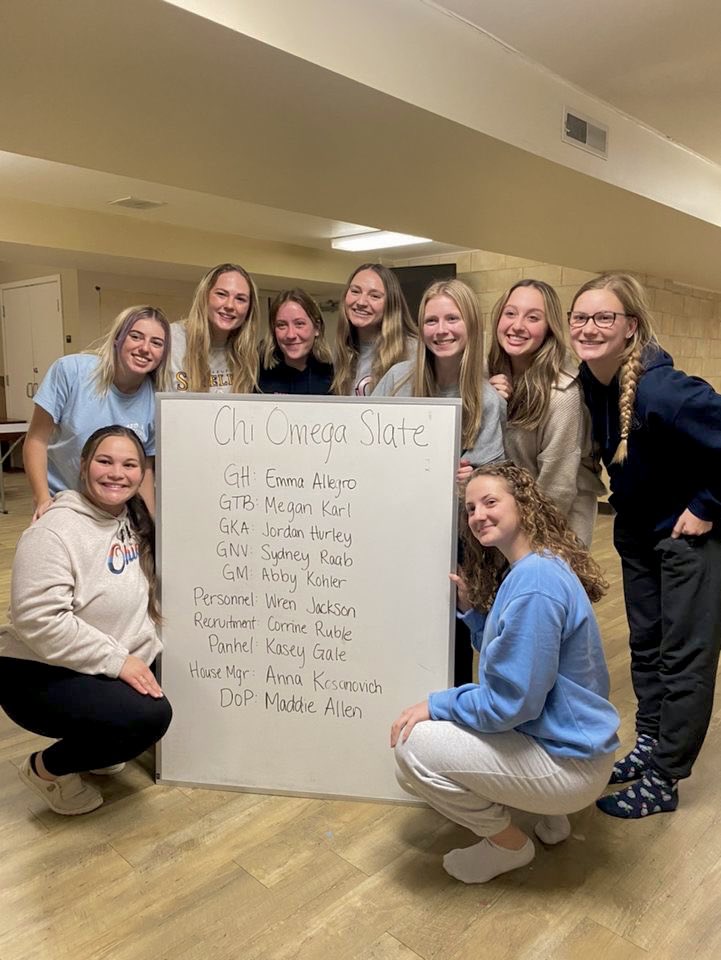 Chi Omega Slate
GH: Emma Allegro
GTB: Megan Karl
GKA: Jordan Hurley
GNV: Sydney Raab
GM: Abby Kohler
Personnel: Wren Jackson
Recruitment: Corrine Ruble
Panhel: Kasey Gale
House Mgr: Anna Kosanovich
DoP: Maddie Allen
Ohio